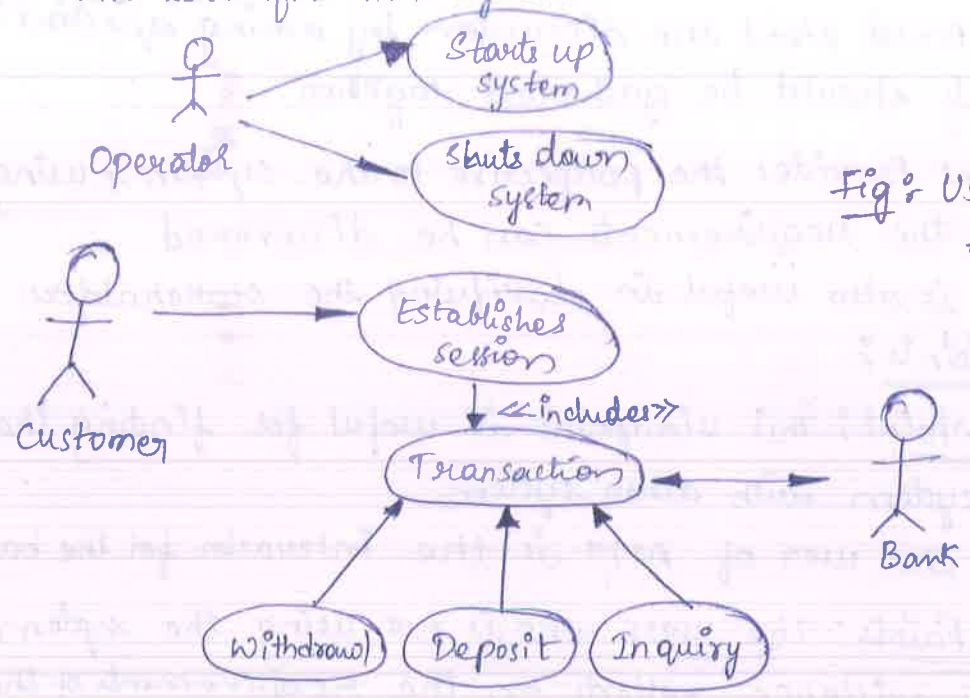 Starts up
system
Operator
shuts down
system
Fig:
Establishes
session
<<includes>>
Customer
Transaction
Bank
Withdrawl
Deposit
Inquiry